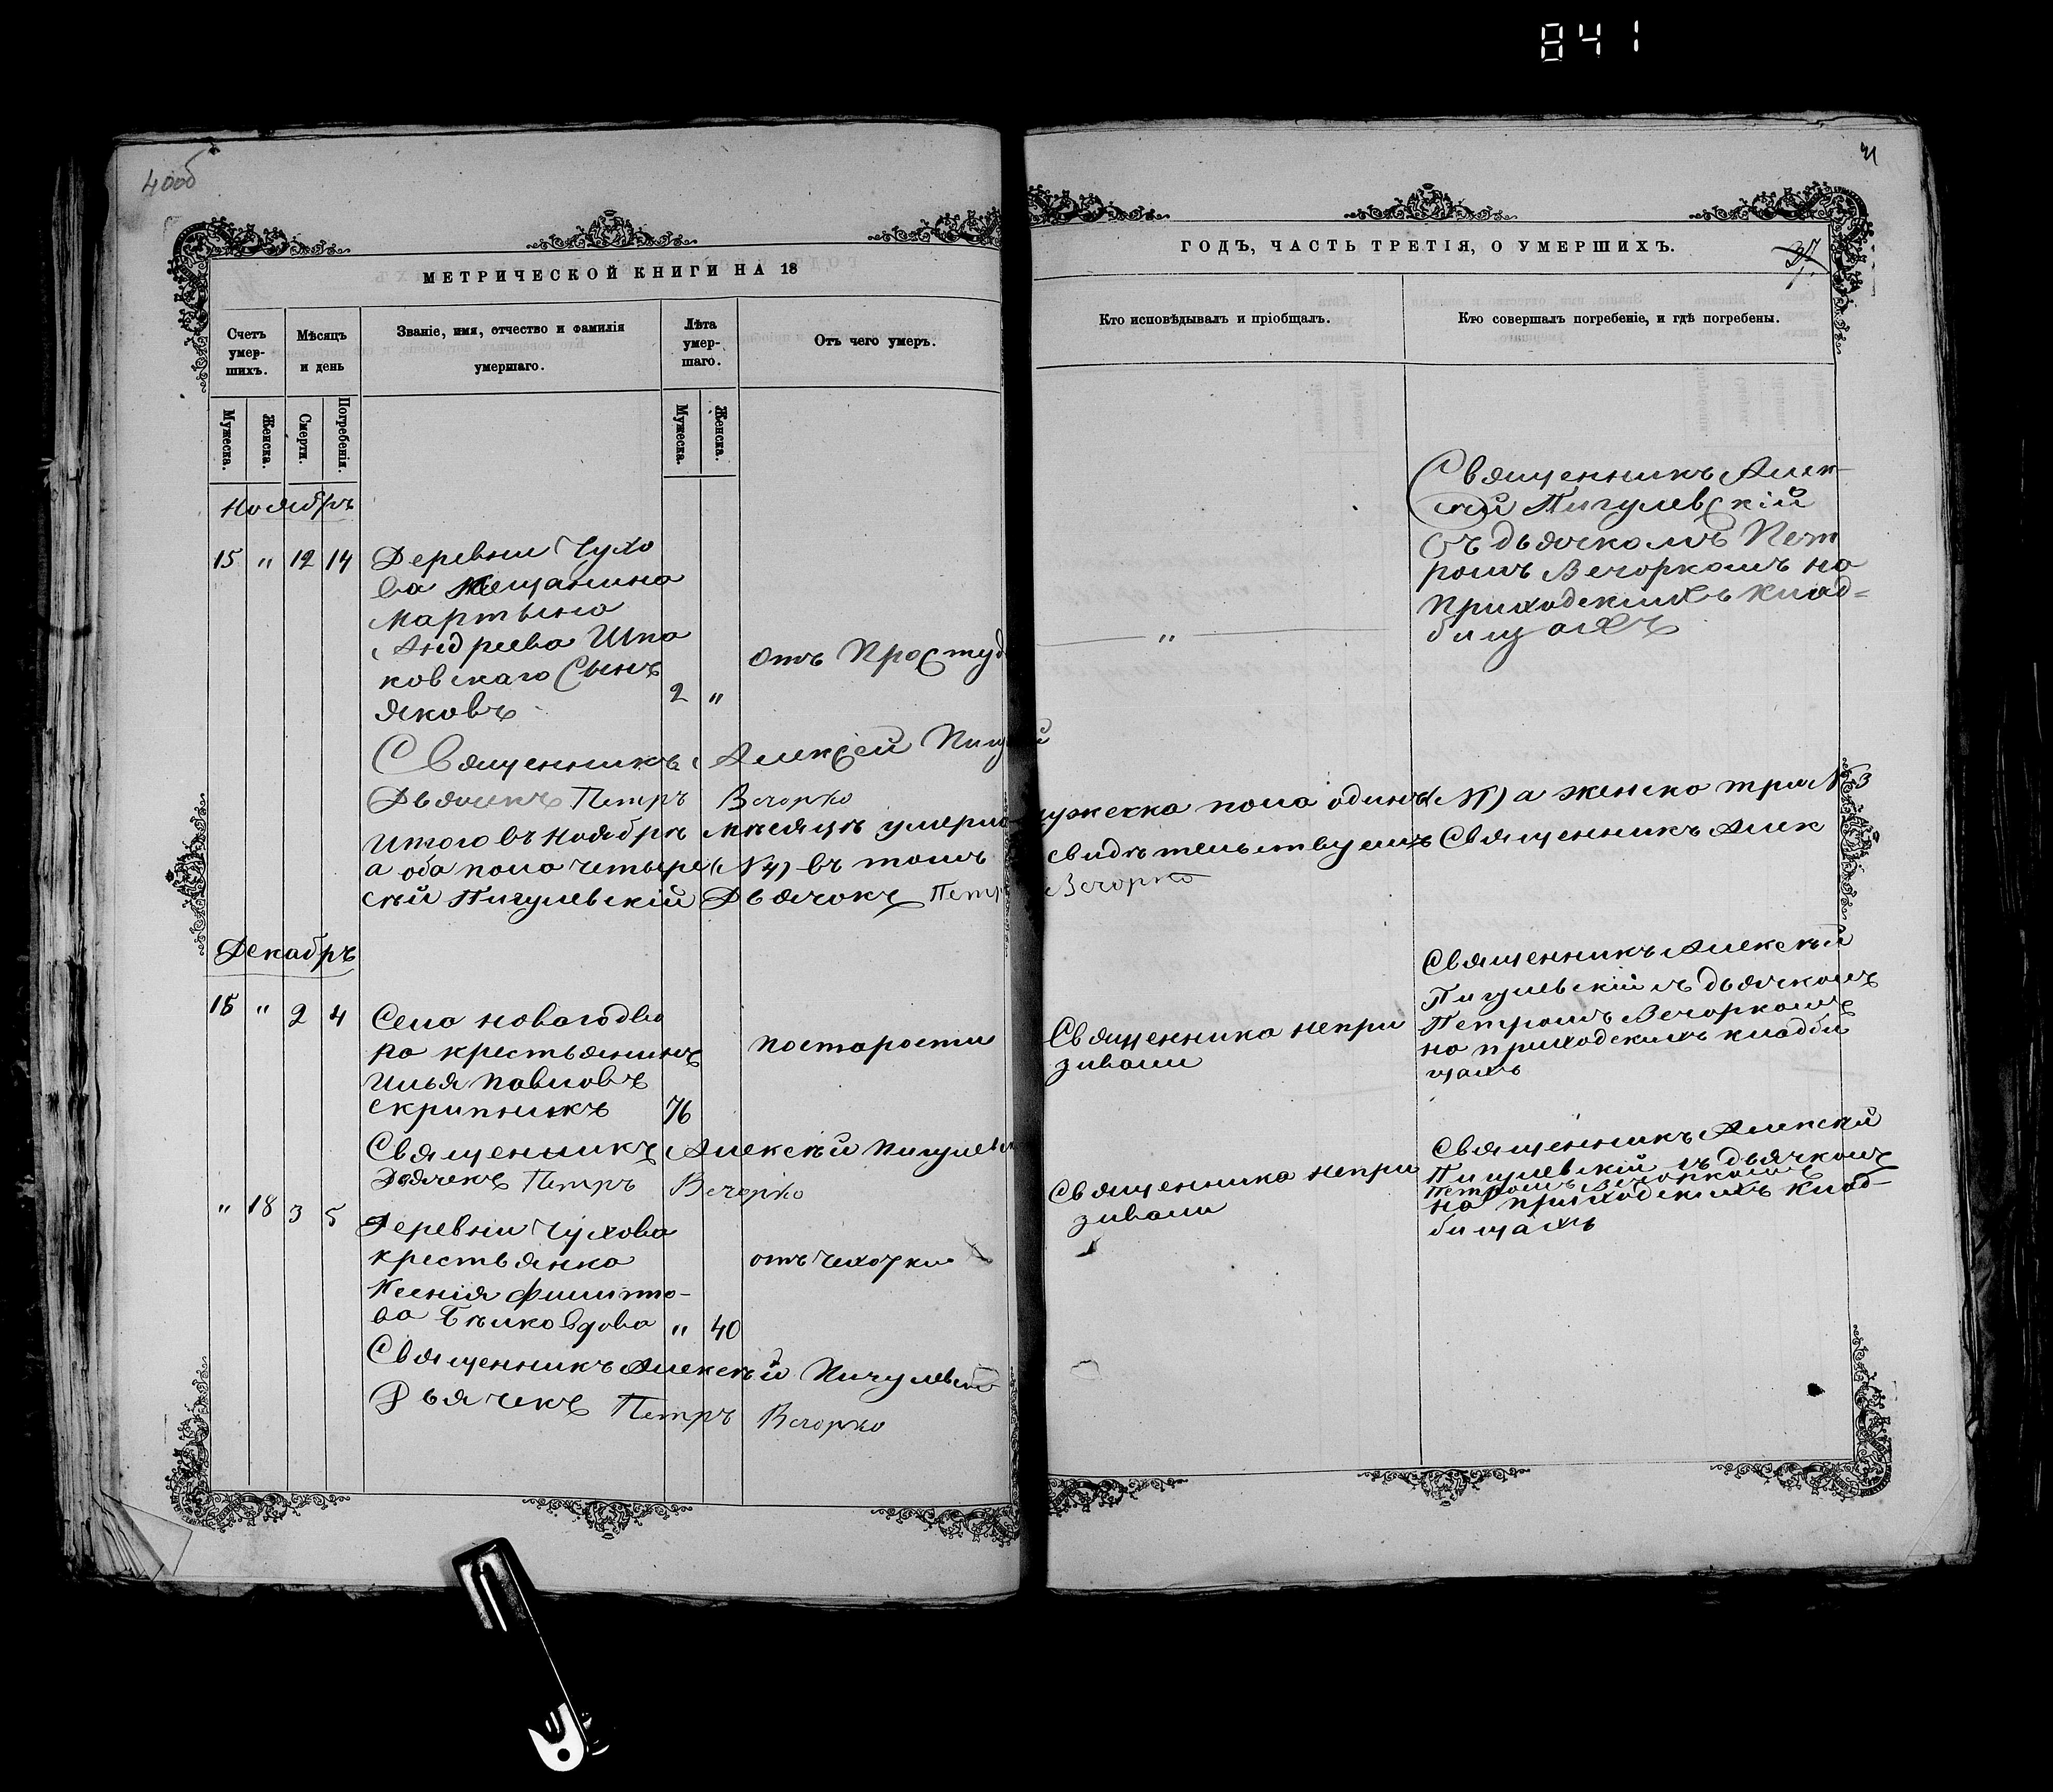 841
40об
41
МЕТРИЧЕСКОЙ КНИГИ НА 18
ГОДЪ, ЧАСТЬ ТРЕТІЯ, О УМЕРШИХЪ.
Счетъ умер-шихъ.
Мѣсяцъ и день
Званіе, имя, отчество и фамилія умершаго.
Лѣта умер-шаго.
Отъ чего умеръ.
Кто исповѣдывалъ и пріобщалъ.
Кто совершалъ погребеніе, и гдѣ погребены.
Мужеска.
Женска.
Смерти.
Погребенія.
Мужеска.
Женска.
Ноябрь
15 " 12 14
Деревни Чухо
ва мещанина
Мартына
Андреева Шпа
ковскаго Сынъ
Яковъ
2 "
отъ Простуд
"
Священникъ Алек-
сей Пигулевскій
Съ дьячкомъ Пет
ромъ Вечоркомъ на
приходскихъ клад=
бищахъ
Священникъ Алексей Пигул
Дьячекъ Петръ Вечорко
Итого въ Ноябрѣ мѣсяцѣ умерло мужеска пола одинъ (N 1) а женска три N 3
а оба пола четыре (N 4) въ томъ свидѣтельствуемъ Священникъ Алек
сѣй Пигулевскій Дьячокъ Петръ Вечорко
Декабрь
15 " 2 4
Села новагодво
ра крестьянинъ
Илья Павловъ
Скрипникъ
76
постарости
Священника непри
зивали
Священникъ Алексѣй
Пигулевскій съ дьячкомъ
Петромъ Вечоркомъ
на приходскихъ кладби
щахъ
Священникъ Алексѣй Пигулевск
Дьячекъ Петръ Вечорко
" 18 3 5
Деревни Чухова
крестьянка
Ксенія Филипо-
ва Бѣлко вдова
" 40
отъ чахотки
Священника непри
зивали
Священникъ Алексѣй
Пигулевскій съ дьячкомъ
Петромъ Вечоркомъ
на приходскихъ клад-
бищахъ
Священникъ Алексѣй Пигулевскій
Дьячекъ Петръ Вечорко